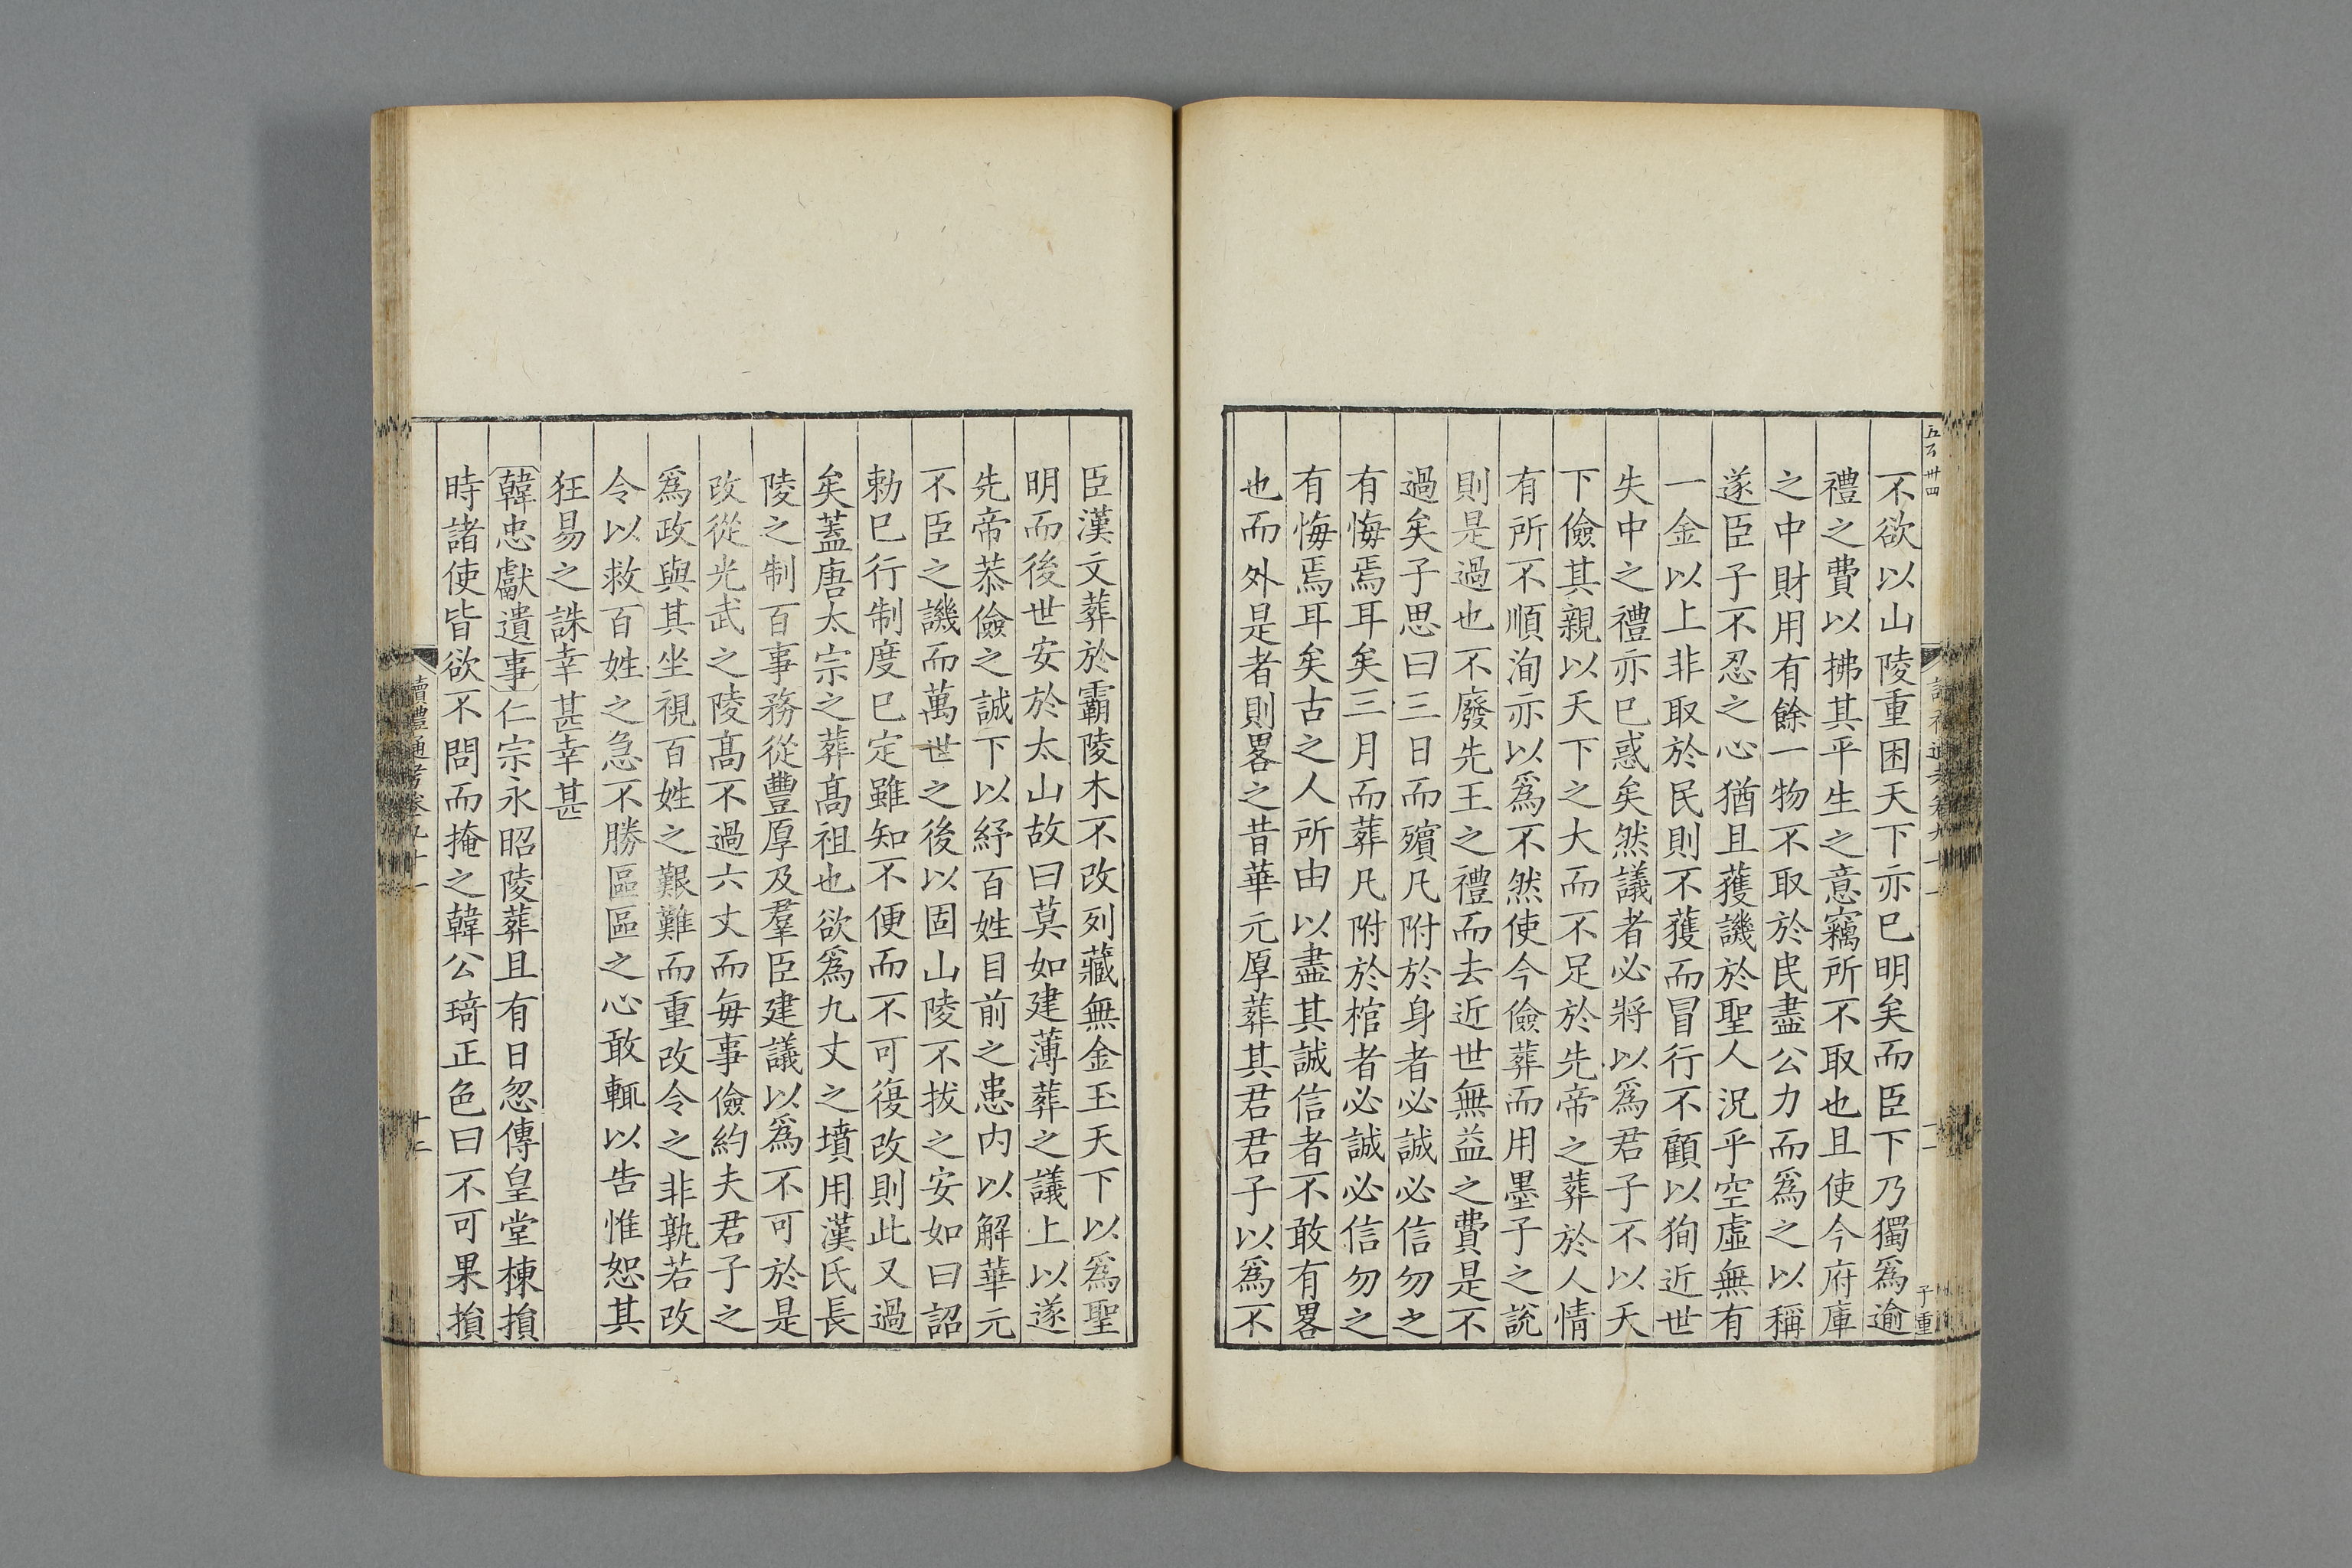 不欲以山陵重困天下亦已明矣而臣下乃獨爲逾
禮之費以拂其平生之意竊所不取也且使今府庫
之中財用有餘一物不取於民盡公力而爲之以稱
遂臣子不忍之心猶且獲譏於聖人況乎空虛無有
一金以上非取於民則不獲而冒行不顧以狥近世
失中之禮亦已惑矣然議者必將以爲君子不以天
下儉其親以天下之大而不足於先帝之葬於人情
有所不順洵亦以爲不然使今儉葬而用墨子之說
則是過也不廢先王之禮而去近世無益之費是不
過矣子思曰三日而殯凡附於身者必誠必信勿之
有悔焉耳矣三月而葬凡附於棺者必誠必信勿之
有悔焉耳矣古之人所由以盡其誠信者不敢有畧
也而外是者則畧之昔華元厚葬其君君子以爲不
臣漢文葬於霸陵木不改列藏無金玉天下以爲聖
明而後世安於太山故曰莫如建薄葬之議上以遂
先帝恭儉之誠下以紓百姓目前之患内以解華元
不臣之譏而萬世之後以固山陵不拔之安如曰詔
勅已行制度已定雖知不便而不可復改則此又過
矣蓋唐太宗之葬髙祖也欲爲九丈之墳用漢氏長
陵之制百事務從豐厚及羣臣建議以爲不可於是
改從光武之陵髙不過六丈而每事儉約夫君子之
爲政與其坐視百姓之艱難而重改令之非孰若改
令以救百姓之急不勝區區之心敢輒以告惟恕其
狂易之誅幸甚幸甚
韓忠獻遺事仁宗永昭陵葬且有日忽傳皇堂棟損
時諸使皆欲不問而掩之韓公琦正色曰不可果損
讀禮通考卷九十一